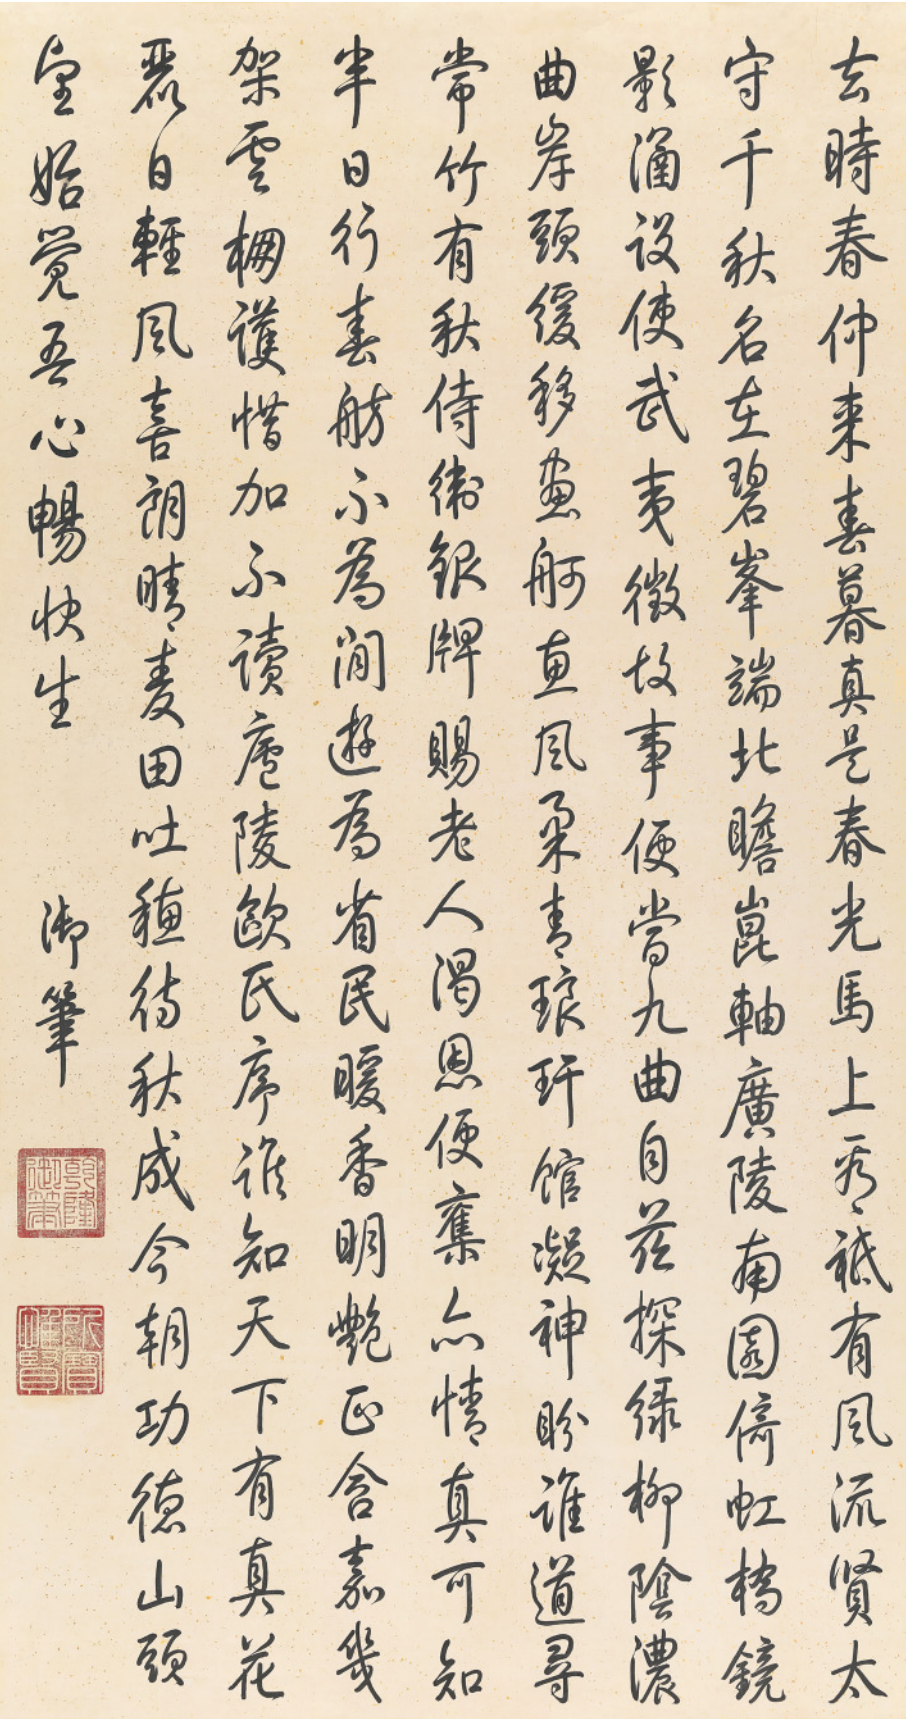 去時春仲來春暮真是春光馬上看祗有風流賢太
守千秋名在碧峯端北瞻崑軸廣陵南園倚虹橋鏡
影涵設使武夷徵故事便當九曲自茲探綠柳陰濃
曲岸頭緩移畫舸惠風柔青琅玕館凝神盼誰道尋
常竹有秋侍衛銀牌賜老人渴恩便奪亦情真可知
半日行春舫不為閒遊為省民暖香明艷正含嘉幾
架雲棚護惜加不讀廬陵歐氏序誰知天下有真花
麗日輕風喜朗晴麥田吐穗待秋成今朝功德山頭
望始覺吾心暢快生
御筆
乾隆御筆
所寶惟賢